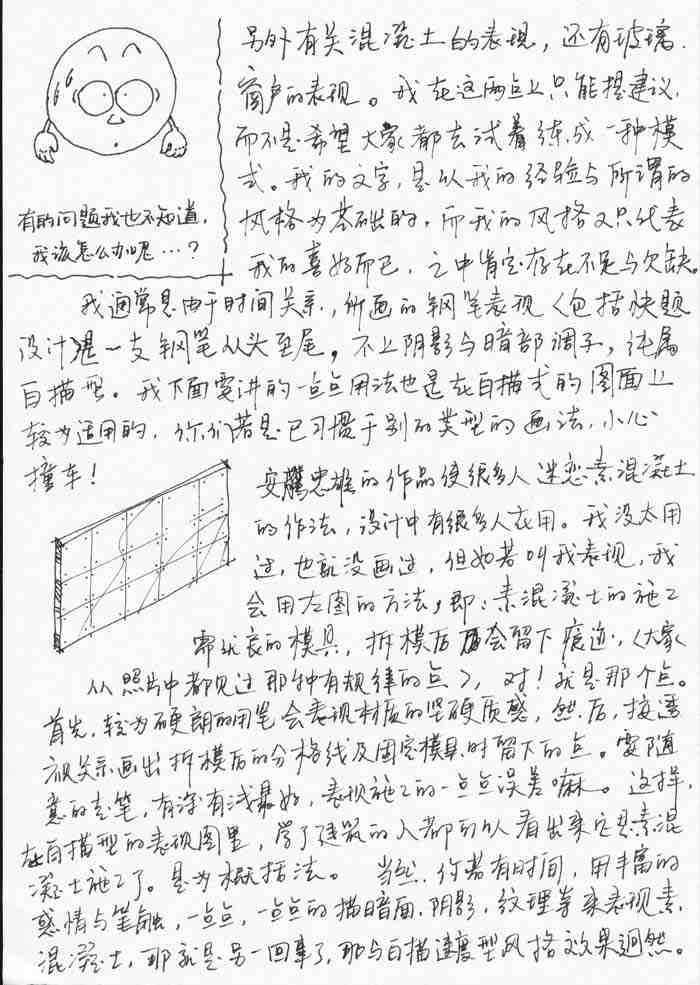 另外有关混凝土的表现，还有玻璃
窗户的表现。我在这两点上只能提建议，
而不是希望大家都去试着练成一种模
式。我的文字，是以我的经验与所谓的
风格为基础的，而我的风格又只代表
我的喜好而已，之中肯定存在不足与欠缺。
有的问题我也不知道，
我该怎么办呢…？
我通常是由于时间关系，所画的钢笔表现（包括快题
设计）是一支钢笔从头至尾，不上阴影与暗部调子，纯属
白描型。我下面要讲的一点点用法也是在白描式的图面上
较为适用的，你们若是已习惯于别的类型的画法，小心
撞车！
安藤忠雄的作品使很多人迷恋素混凝土
的作法，设计中有很多人在用。我没太用
过，也就没画过，但如若叫我表现，我
会用左图的方法，即：素混凝土的施工
需优良的模具，拆模后会留下痕迹，（大家
从照片中都见过那种有规律的点），对！就是那个点。
首先，较为硬朗的用笔会表现材质的坚硬质感，然后，按透
视关系画出拆模后的分格线及固定模具时留下的点。要随
意的去笔，有深有浅最好，表现施工的一点点误差嘛。这样，
在白描型的表现图里，学了建筑的人都可以看出来它是素混
凝土施工了。是为概括法。当然，你若有时间，用丰富的
感情与笔触，一点点，一点点的描暗面，阴影，纹理等来表现素
混凝土，那就是另一回事了，那与白描速度型风格效果迥然。